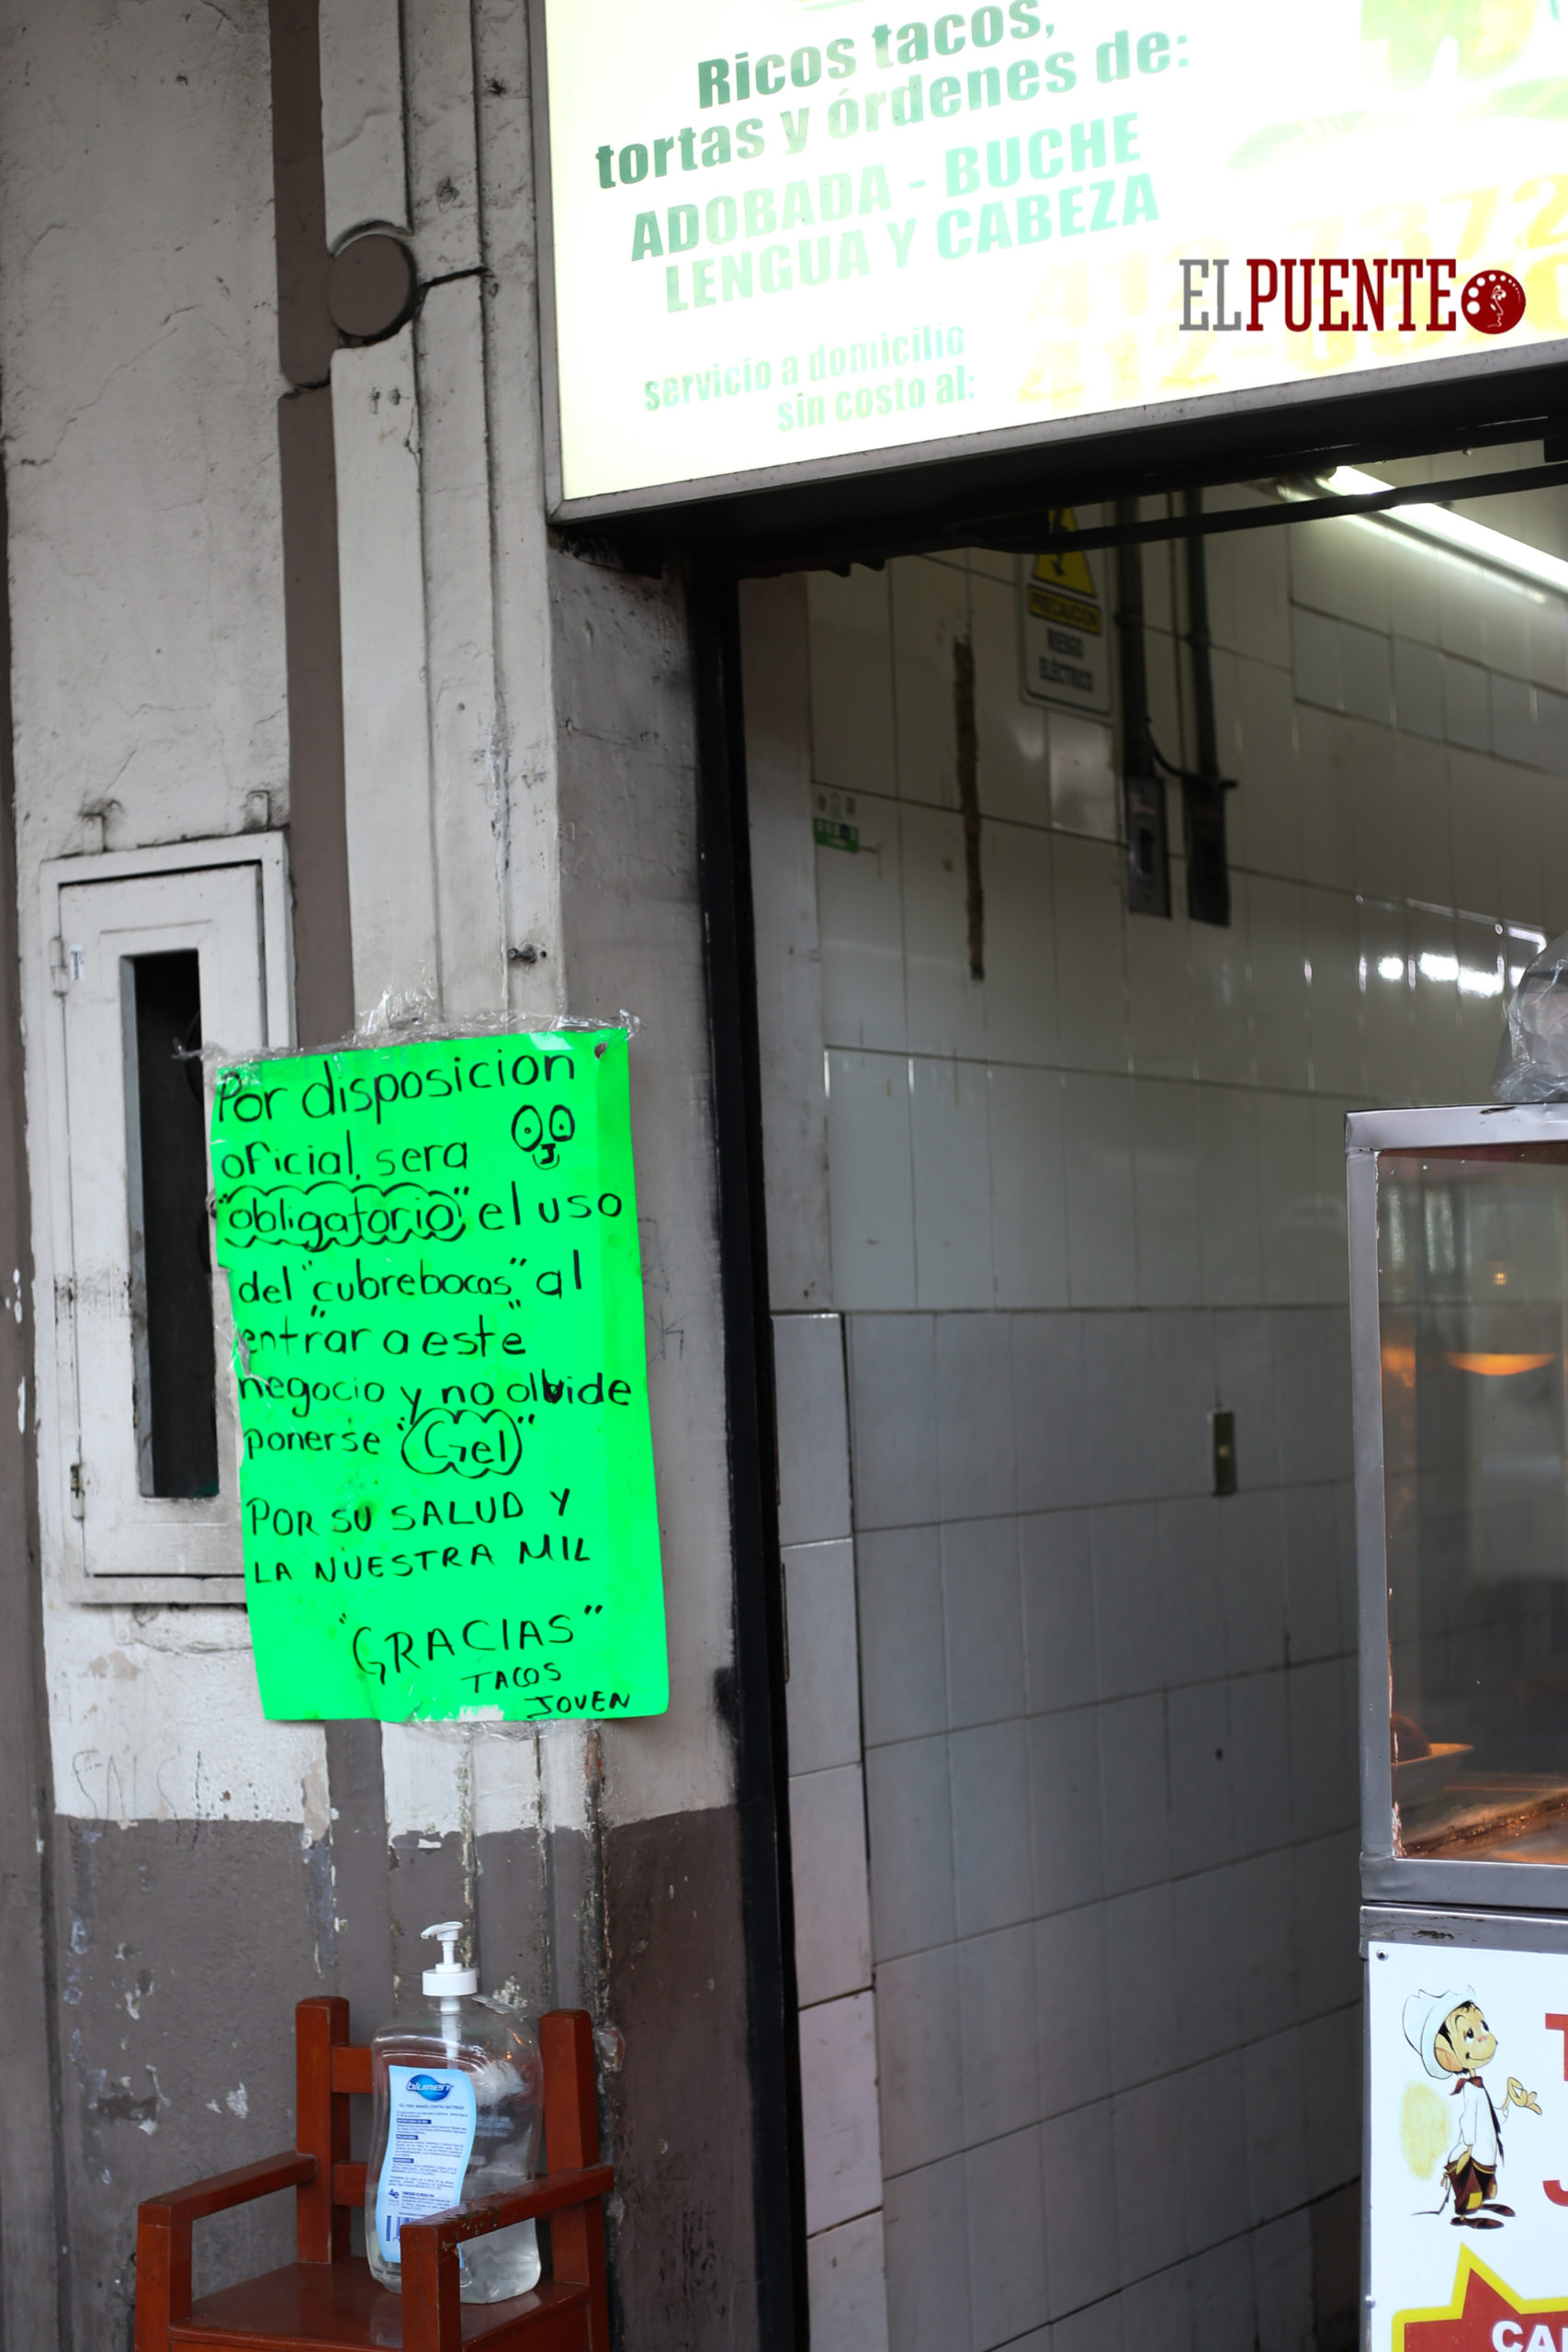 Ricos tacos,
tortas y órdenes de:
ADOBADA - BUCHE
LENGUA Y CABEZA
servicio a domicilio
sin costo al:
ELPUENTE
PRECAUCIÓN
RIESGO
ELÉCTRICO
Por disposicion
oficial, sera
"obligatorio" el uso
del "cubrebocas" al
"entrar a este"
negocio y no olvide
ponerse "Gel"
POR SU SALUD Y
LA NUESTRA MIL
"GRACIAS"
TACOS
JOVEN
blumen